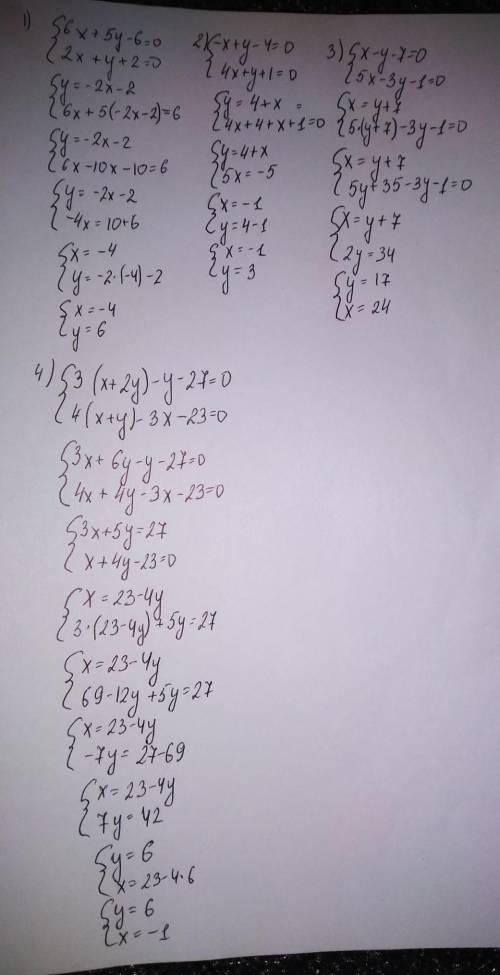 1) {6x+5y-6=0
{2x+y+2=0
{y=-2x-2
{6x+5(-2x-2)=6
{y=-2x-2
{6x-10x-10=6
{y=-2x-2
{-4x=10+6
{x=-4
{y=-2·(-4)-2
{x=-4
{y=6
2) {-x+y-4=0
{4x+y+1=0
{y=4+x =
{4x+4+x+1=0
{y=4+x
{5x=-5
{x=-1
{y=4-1
{x=-1
{y=3
3) {x-y-7=0
{5x-3y-1=0
{x=y+7
{5·(y+7)-3y-1=0
{x=y+7
{5y+35-3y-1=0
{x=y+7
{2y=34
{y=17
{x=24
4) {3(x+2y)-y-27=0
{4(x+y)-3x-23=0
{3x+6y-y-27=0
{4x+4y-3x-23=0
{3x+5y=27
{x+4y-23=0
{x=23-4y
{3·(23-4y)+5y=27
{x=23-4y
{69-12y+5y=27
{x=23-4y
{-7y=27-69
{x=23-4y
{7y=42
{y=6
{x=23-4·6
{y=6
{x=-1